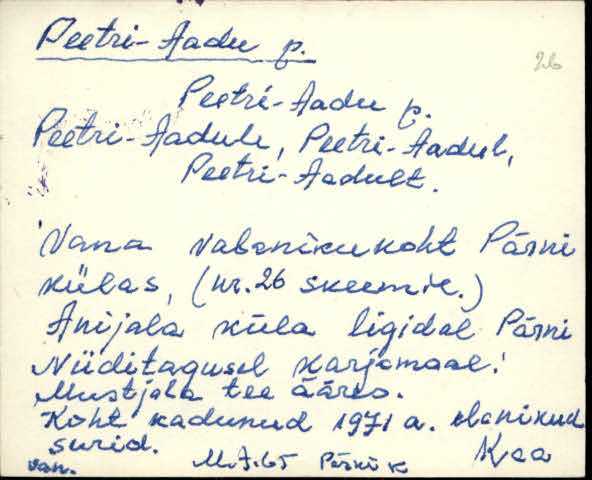 Peetri-Aadu p.
26
Peetri-Aadu p.
Peetri-Aadule, Peetri-Aadul,
Peetri-Aadult.
Vana vabanikukoht Pärni
külas, (nr. 26 skeemil.)
Anijala küla ligidal Pärni
Niiditagusel karjamaal.
Mustjala tee ääres.
Koht kadunud 1971 a. elanikud
surid.
Kaa
van. M.J. 65 Pärni k